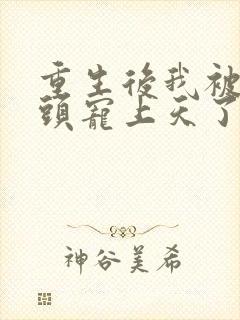 重生後我被
頭寵上天了
神谷美希